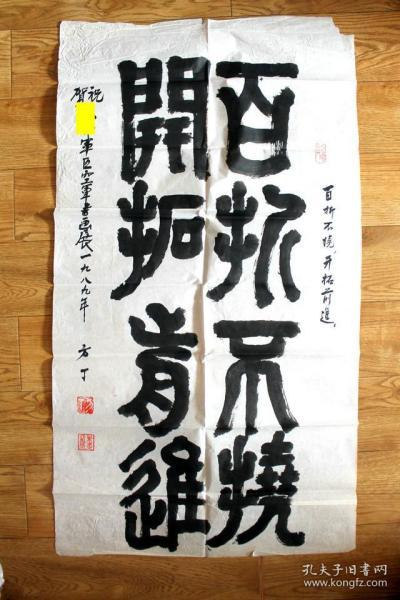 百折不撓
開拓前進
百折不撓，开拓前進，
祝賀
軍區空軍書画展一九八九年
方丁
孔夫子旧书网
www.kongfz.com